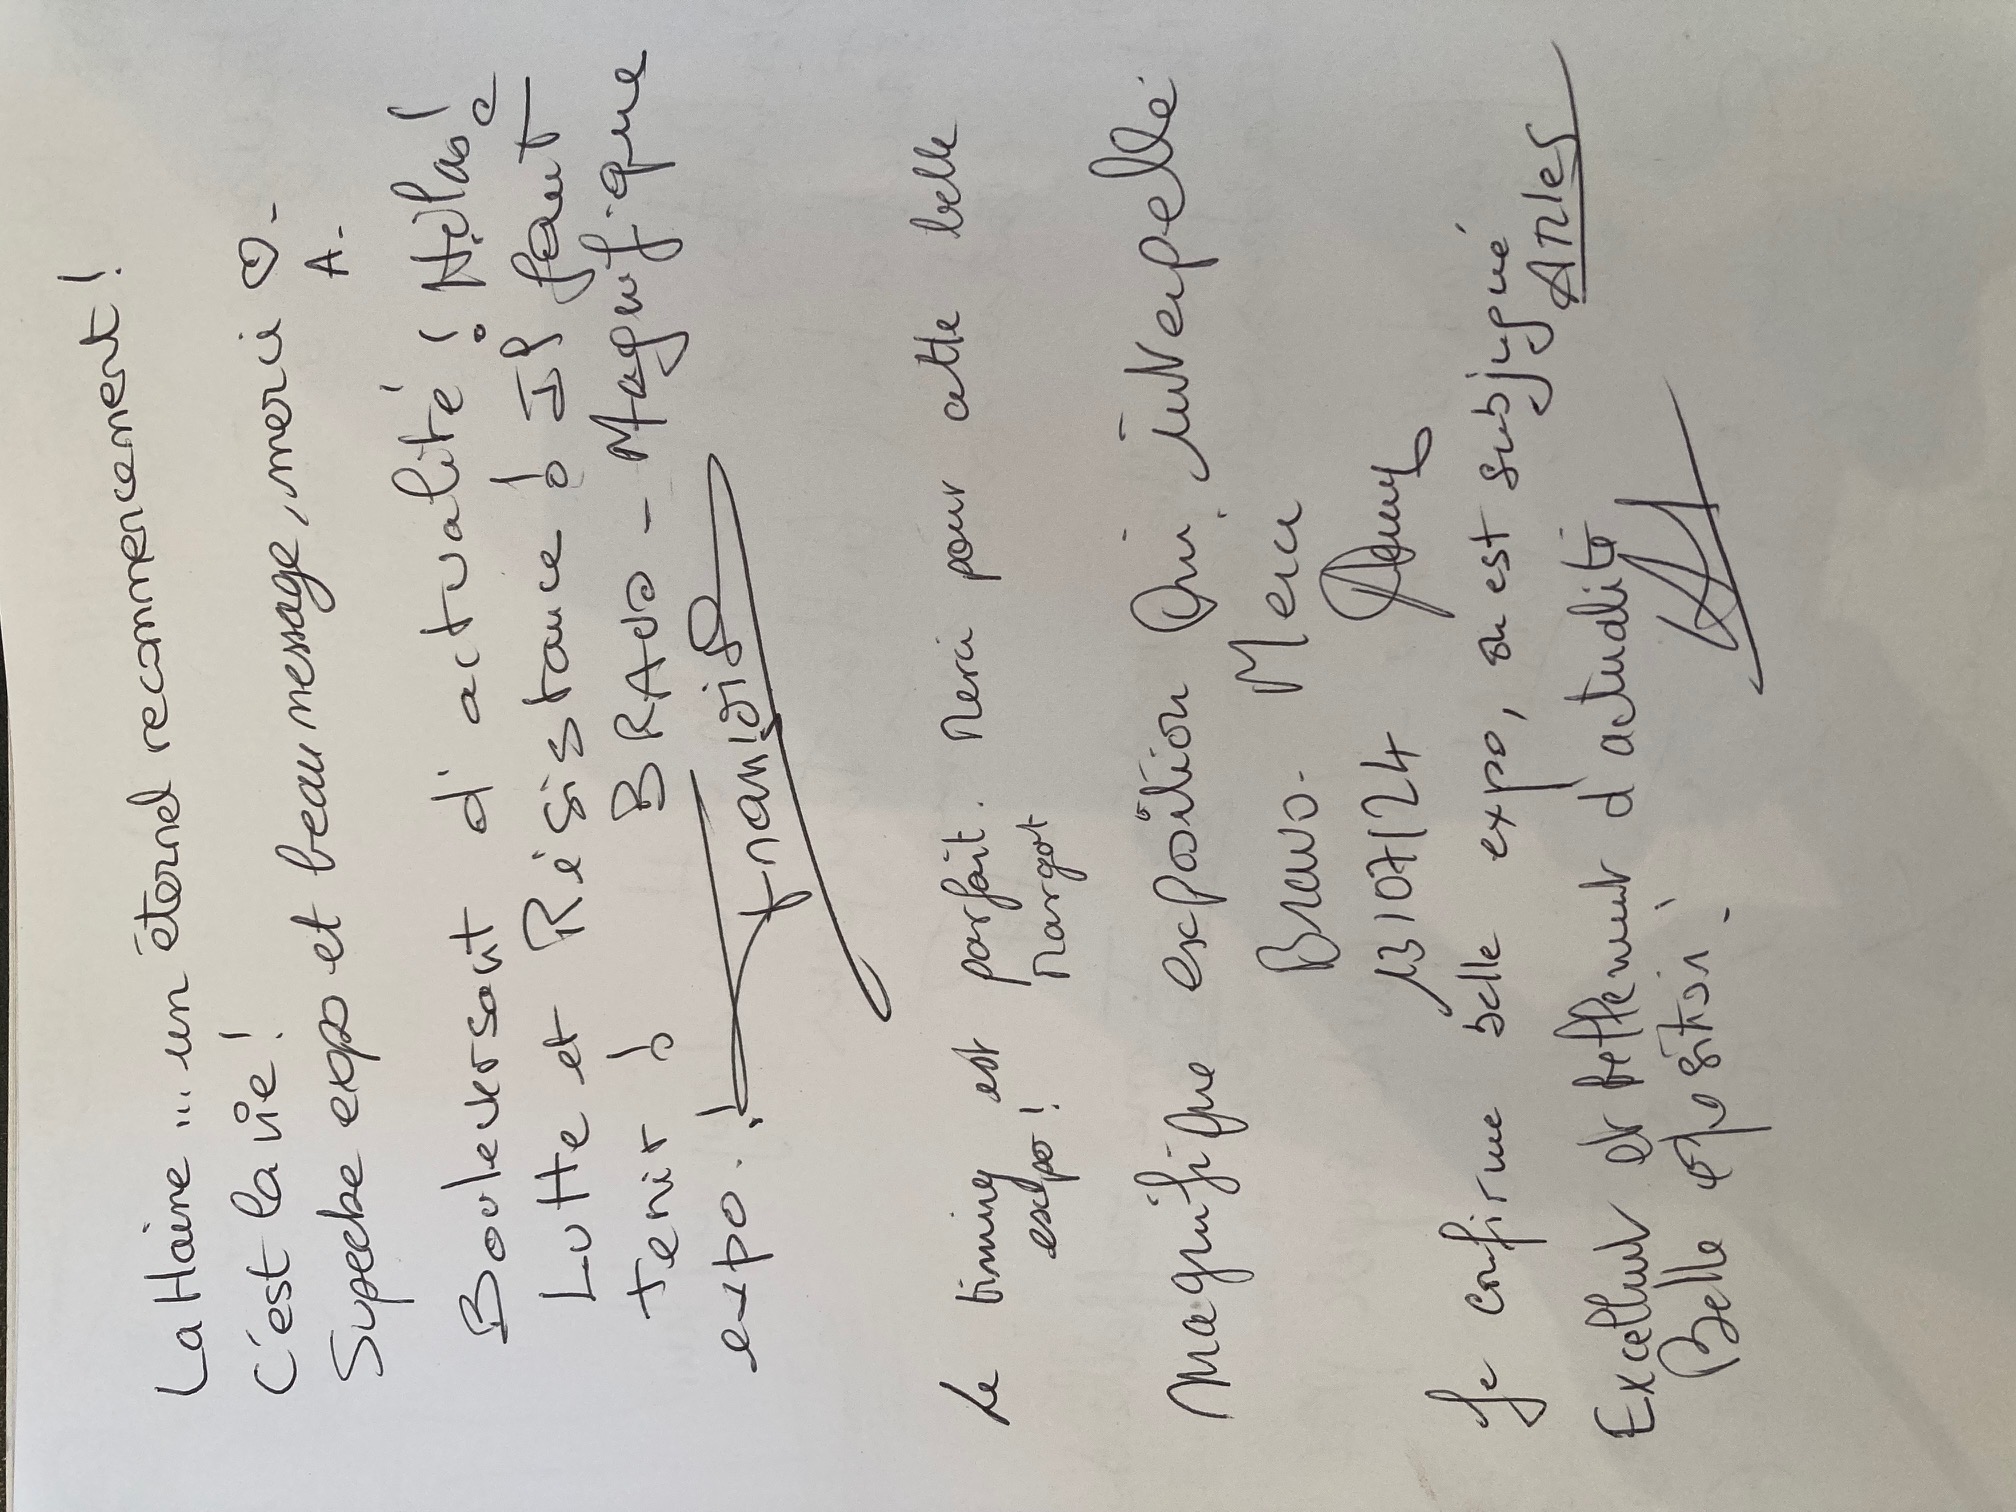 La Haine ... un éternel recommencement !
C'est la vie !
Superbe expo et beau message, merci ♡ -
A.
Bouleversant d'actualité ! Hélas !
Lutte et Résistance ! Il faut
tenir ! BRAVO - Magnifique
expo. !
Le timing est parfait. Merci pour cette belle
expo ! Margot
Magnifique exposition Qui interpelle
Bravo. Merci
13/07/24
Je confirme belle expo, on est subjugué
Arles
Excellent et tellement d'actualité
Belle exposition.